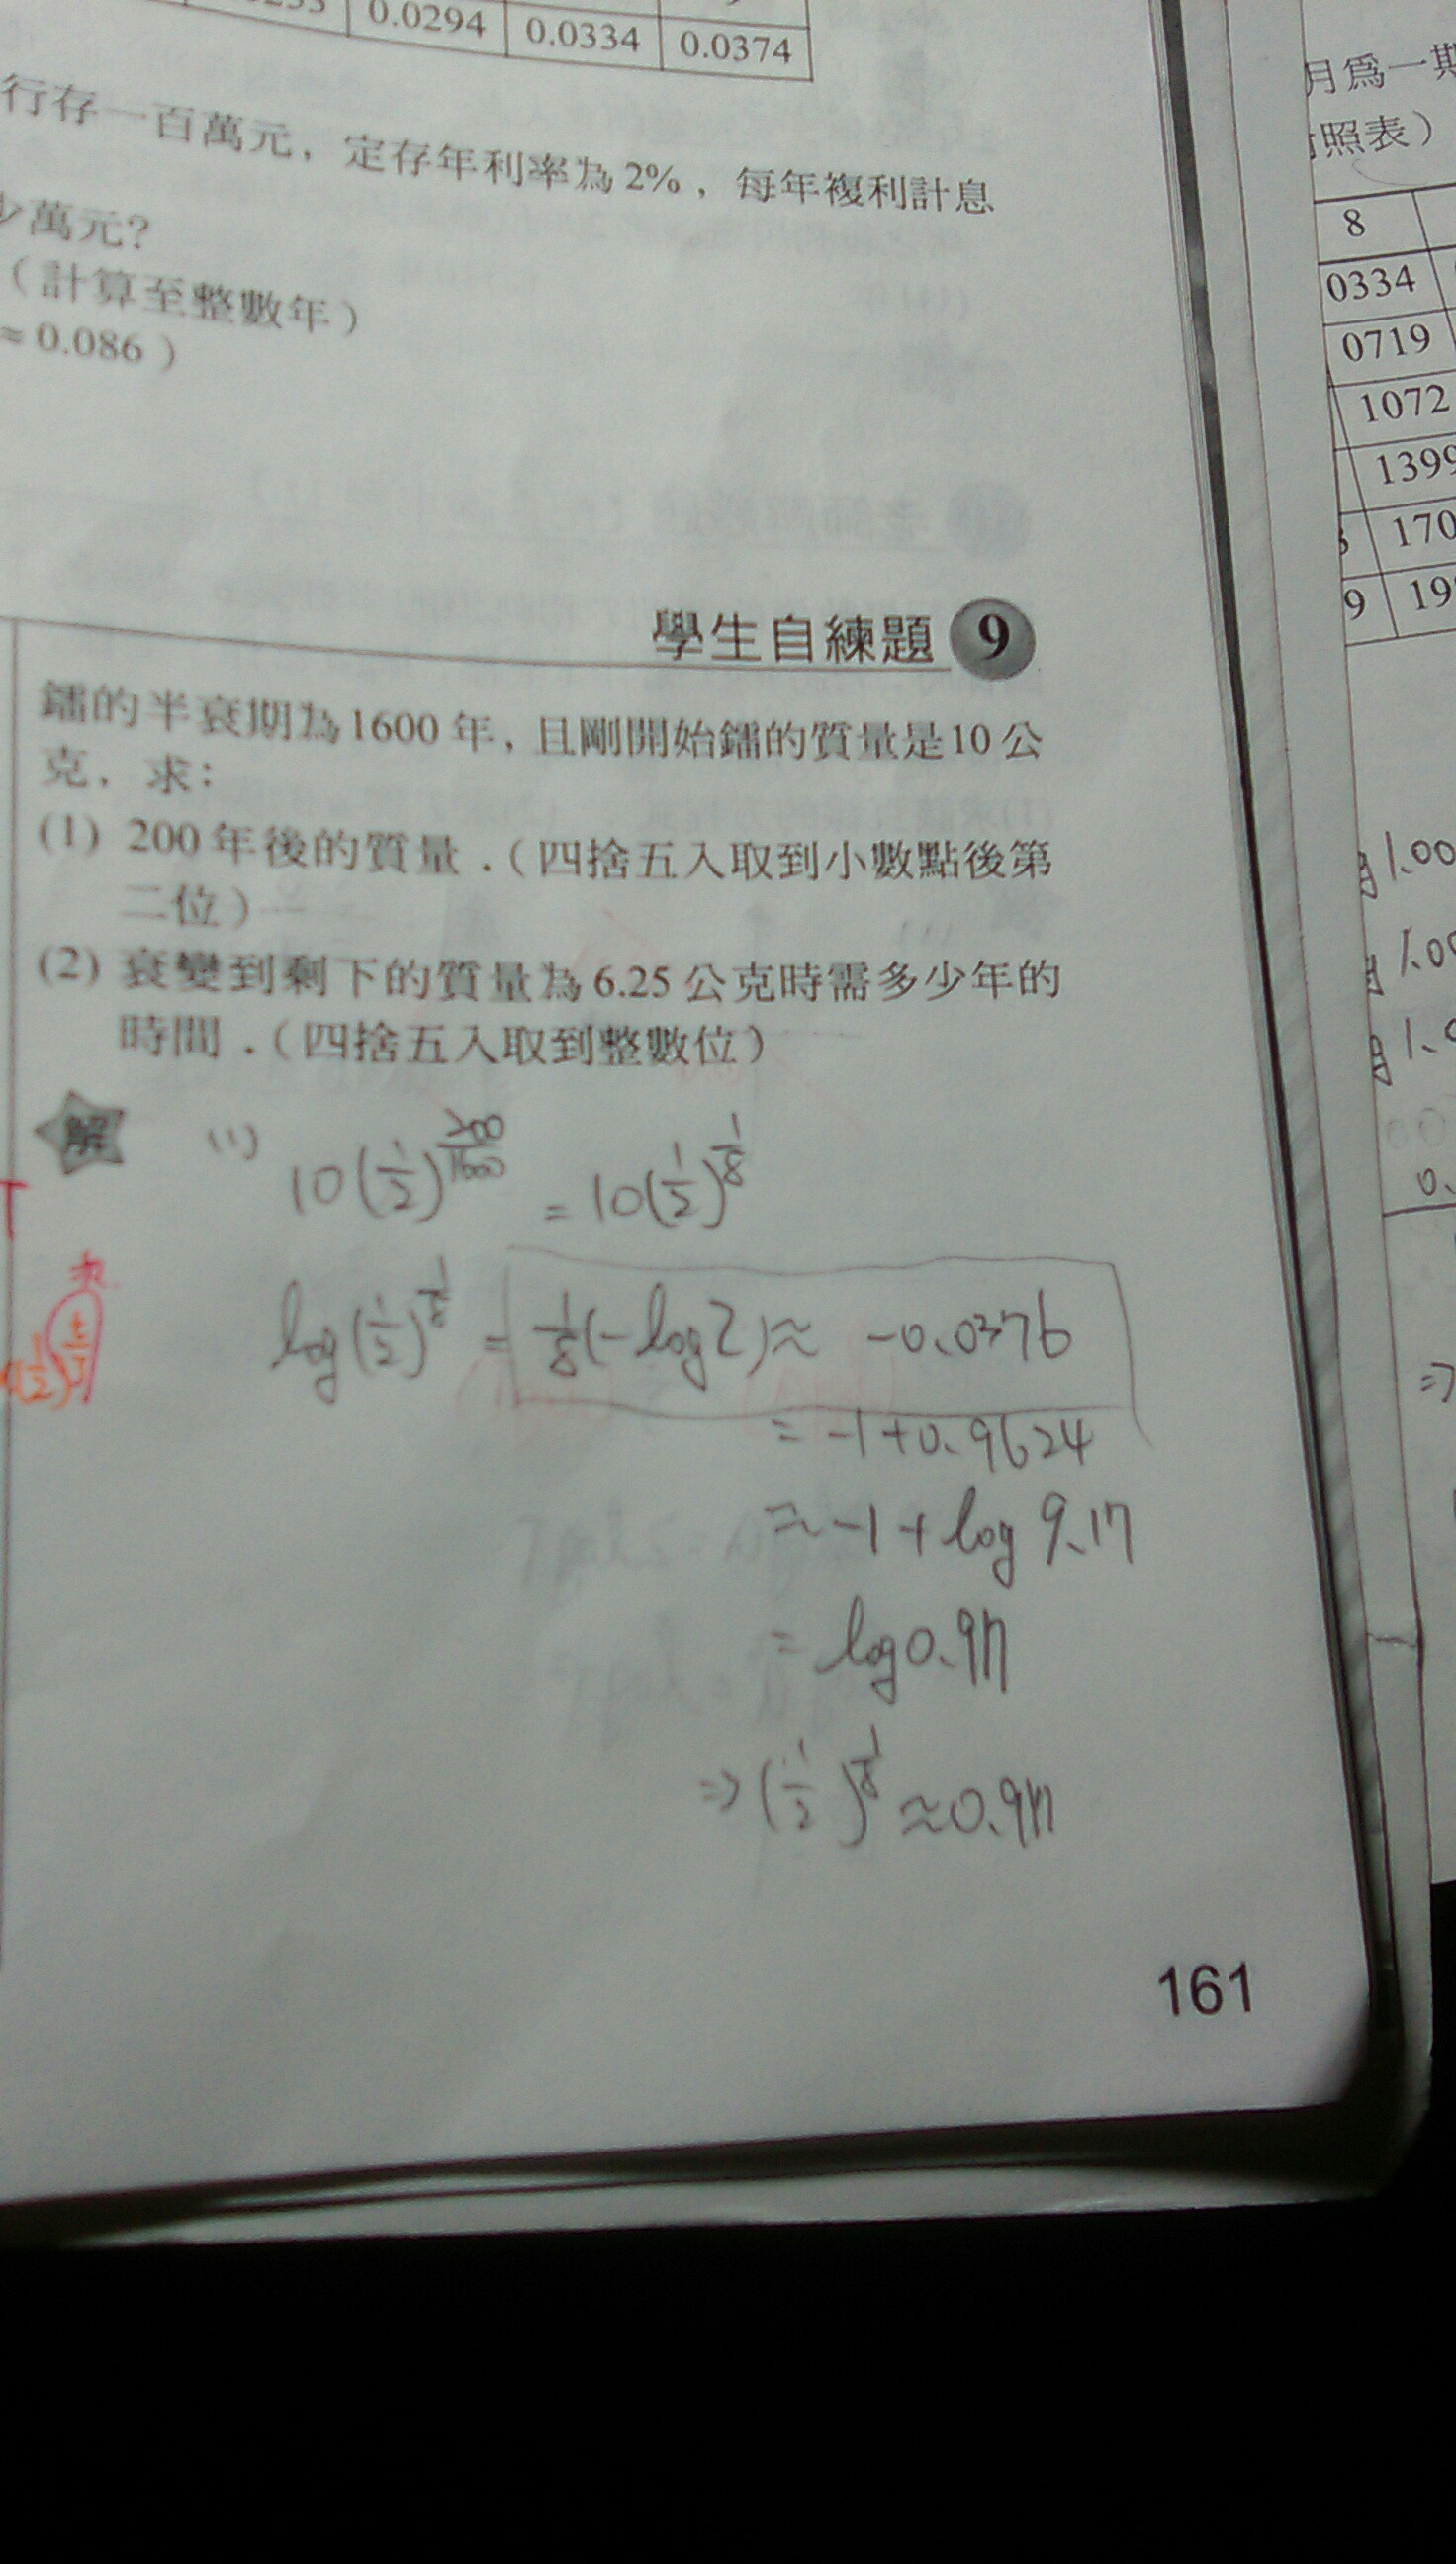 0.0294 0.0334 0.0374
行存一百萬元，定存年利率為2%，每年複利計息
少萬元？
（計算至整數年）
≈ 0.086）
學生自練題 9
鐳的半衰期為1600年，且剛開始鐳的質量是10公
克，求：
(1) 200年後的質量．（四捨五入取到小數點後第
二位）
(2) 衰變到剩下的質量為6.25公克時需多少年的
時間．（四捨五入取到整數位）
解 (1) 10(1/2)^(200/1600) = 10(1/2)^(1/8)
log(1/2)^(1/8) = 1/8(-log2) ≈ -0.0376
= -1+0.9624
≈ -1 + log 9.17
= log 0.917
⇒ (1/2)^(1/8) ≈ 0.917
161
月為一期
照表）
8
0334
0719
1072
1399
170
9 19
月1.00
月1.00
月1.0
0.
⇒